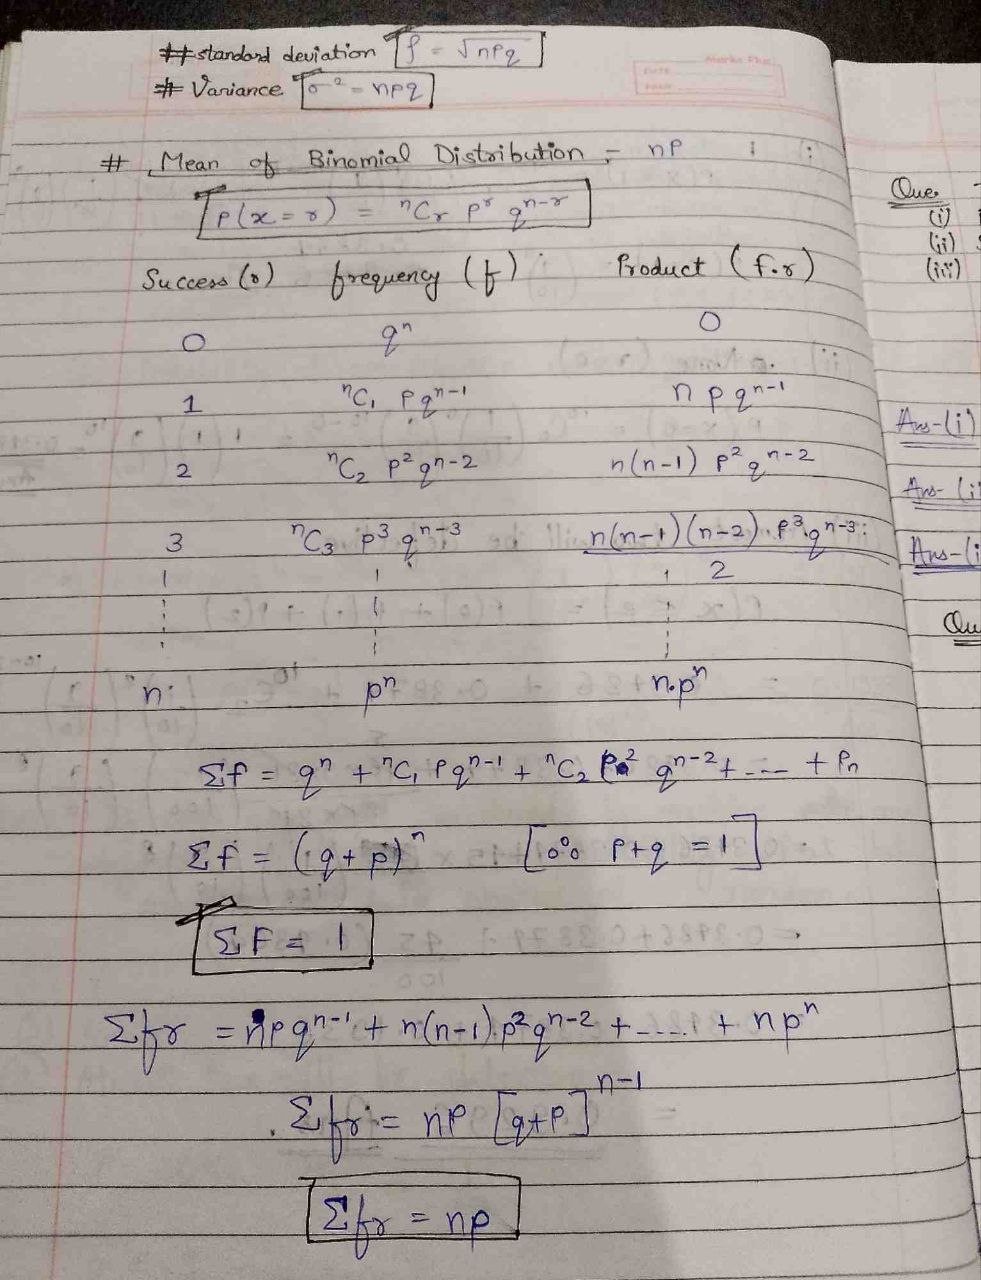 ## standard deviation ρ = √npq
# Variance σ² = npq
Marks Plus
DATE
PAGE
# Mean of Binomial Distribution :- np
P(x = r) = ⁿCr pʳ qⁿ⁻ʳ
Success (r) frequency (f) Product (f.r)
0 qⁿ 0
1 ⁿC₁ p qⁿ⁻¹ n p qⁿ⁻¹
2 ⁿC₂ p² qⁿ⁻² n(n-1) p² qⁿ⁻²
3 ⁿC₃ p³ qⁿ⁻³ n(n-1)(n-2).p³.qⁿ⁻³
2
n pⁿ n.pⁿ
Σf = qⁿ + ⁿC₁ p qⁿ⁻¹ + ⁿC₂ p² qⁿ⁻² + --- + Pn
Σf = (q + p)ⁿ [∵ p+q = 1]
ΣF = 1
Σfr = npqⁿ⁻¹ + n(n-1).p²qⁿ⁻² + ..... + npⁿ
Σfr = np [q+p]ⁿ⁻¹
Σfr = np
Que
(i)
(ii)
(iii)
Ans-(i)
Ans-(ii
Ans-(i
Qu